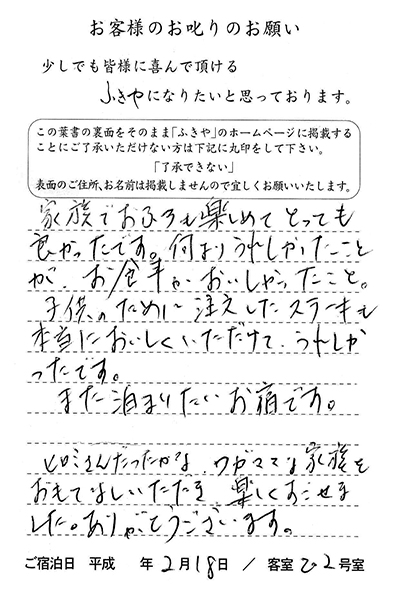 お客様のお叱りのお願い
少しでも皆様に喜んで頂ける
ふきやになりたいと思っております。
この葉書の裏面をそのまま「ふきや」のホームページに掲載する
ことにご了承いただけない方は下記に丸印をして下さい。
「了承できない」
表面のご住所、お名前は掲載しませんので宜しくお願いいたします。
家族でおふろも楽しめてとっても
良かったです。何よりうれしかったこと
が、お食事がおいしかったこと。
子供のために注文したステーキも
本当においしくいただけて、うれしか
ったです。
また泊まりたいお宿です。
ヒロミさんだったかな、ワガママな家族を
おもてなしいただき、楽しくすごせま
した。ありがとうございます。
ご宿泊日 平成 年2月18日 / 客室 ひ2号室